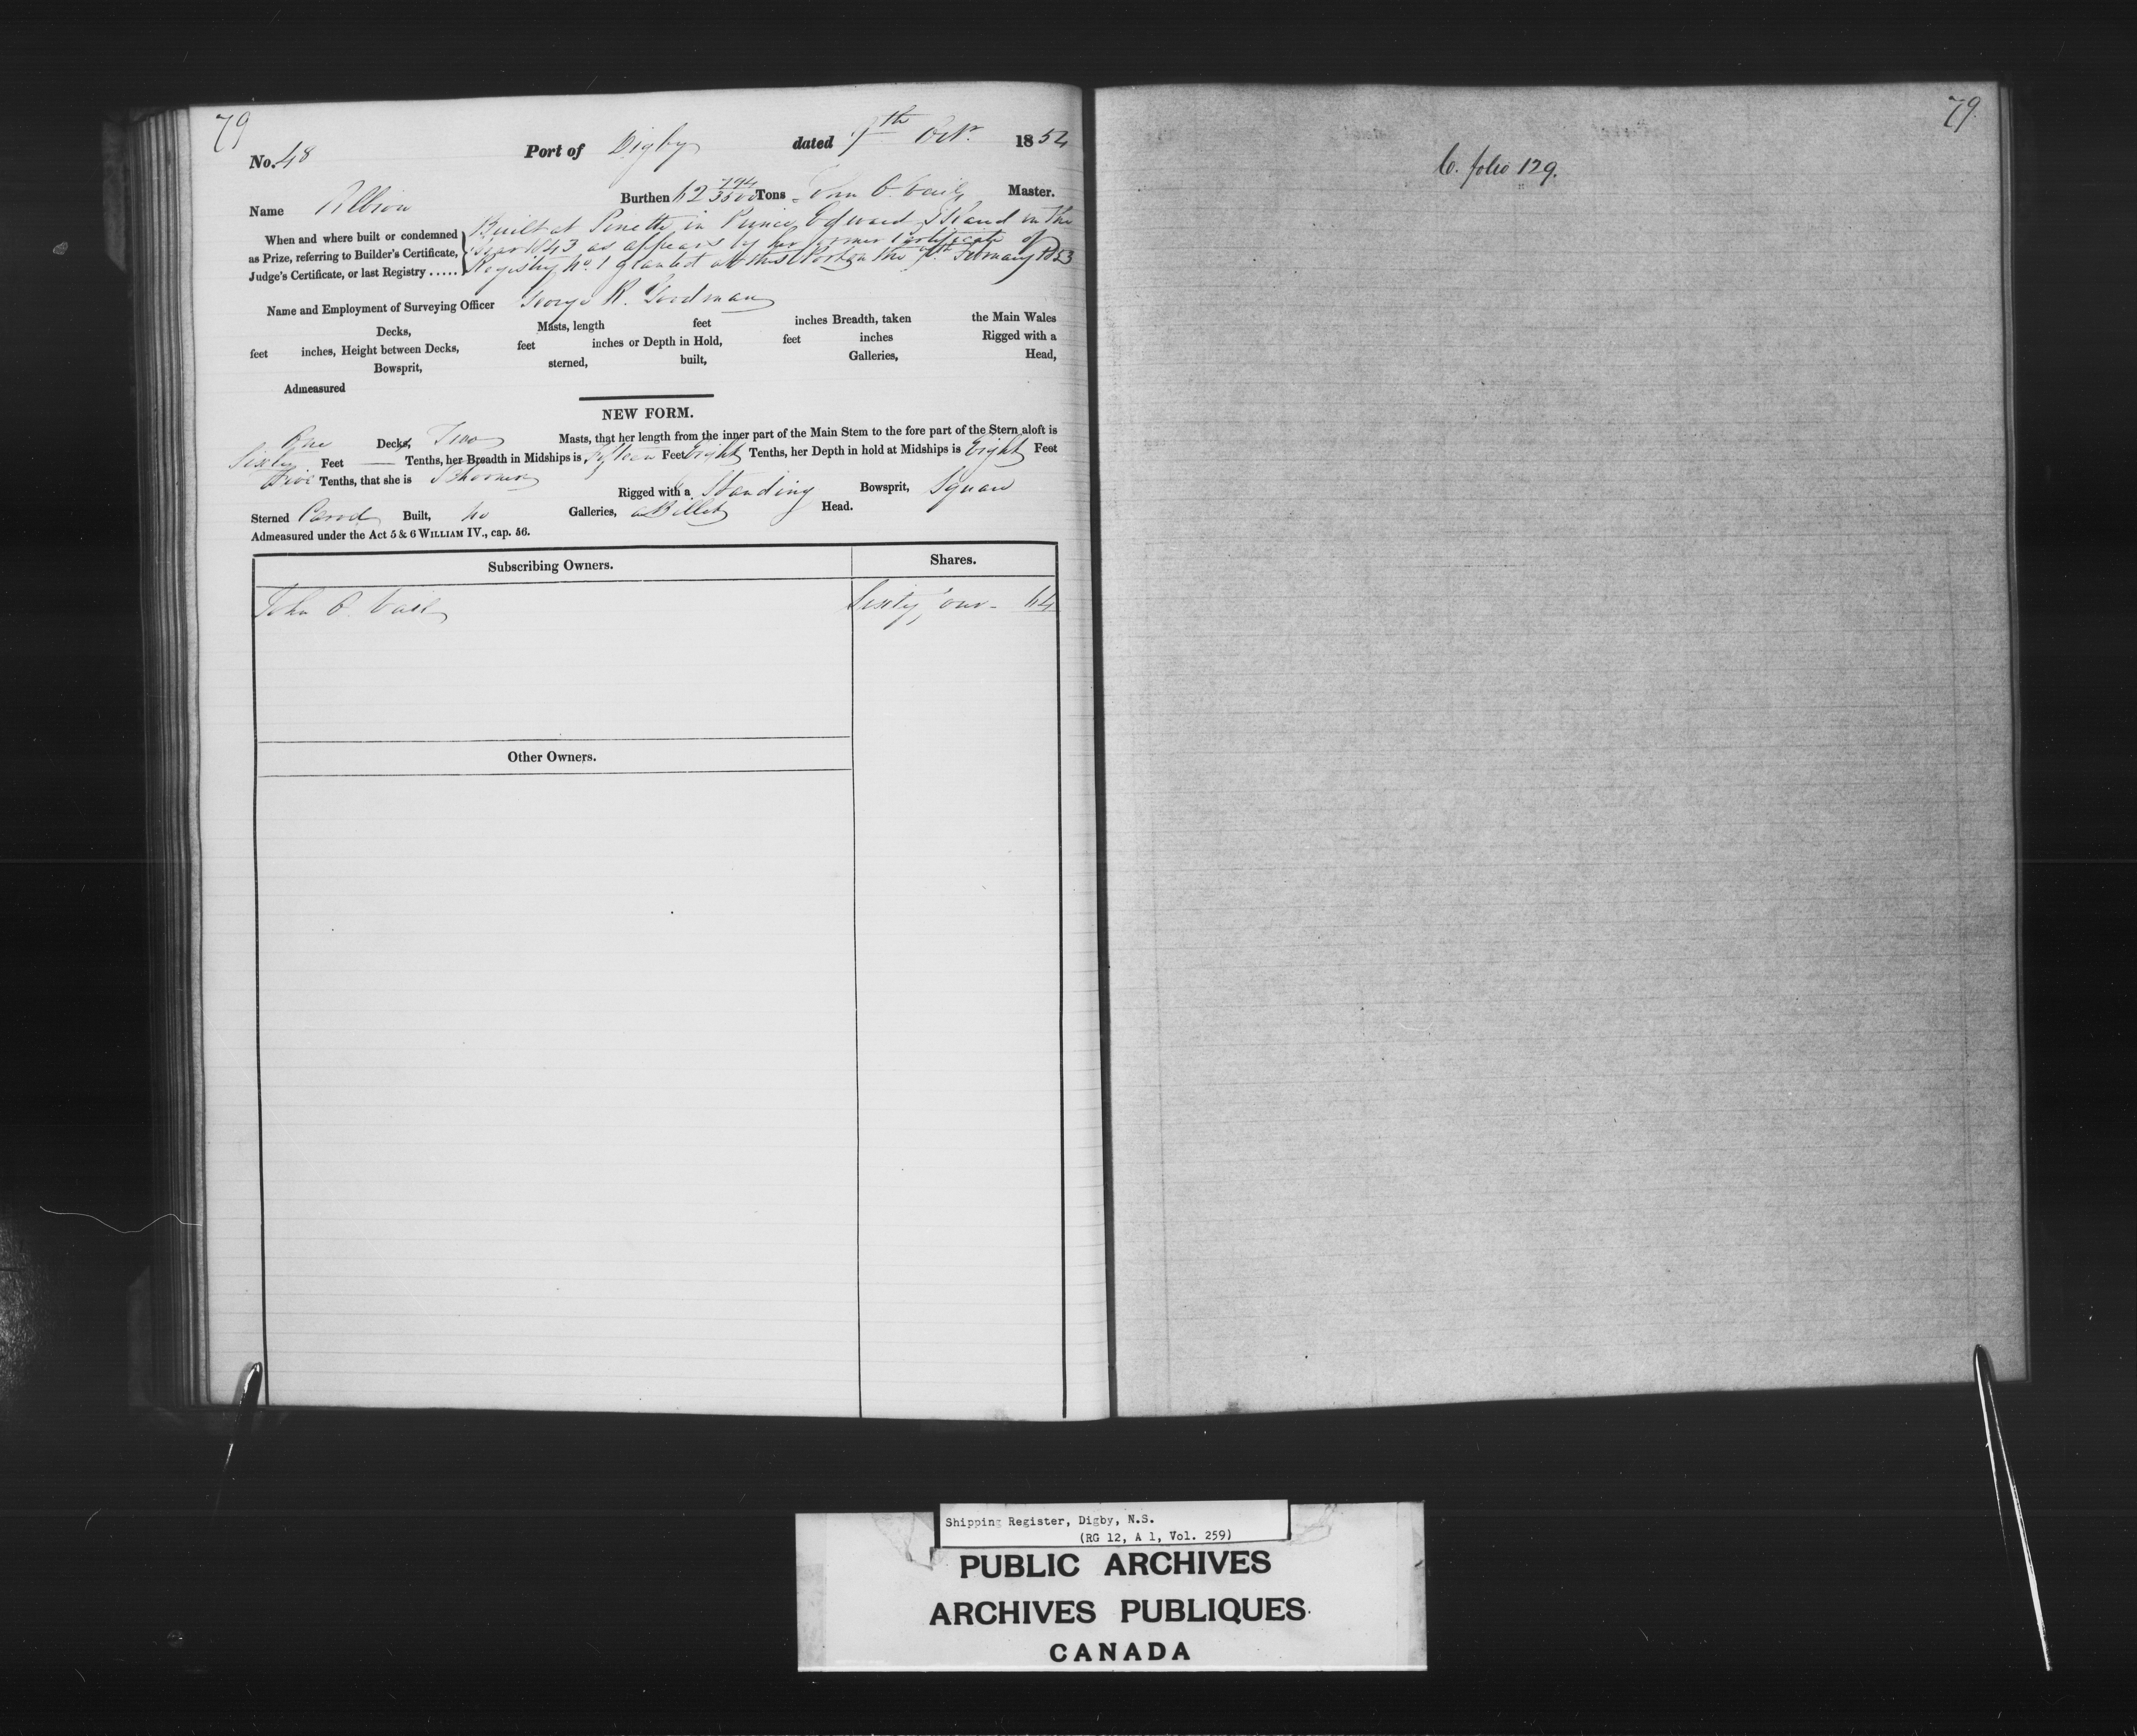 79
No. 48 Port of Digby dated 7th Octr 1854
Name Albion Burthen 62 794/3500 Tons John O. Vail Master.
When and where built or condemned as Prize, referring to Builder's Certificate, Judge's Certificate, or last Registry .....
Built at Pinette in Prince Edward Island in the
year 1843 as appears by her former Certificate of
Registry No. 1 granted at this Port on the 7th February 1853
Name and Employment of Surveying Officer George R. Goodman
Decks, Masts, length feet inches Breadth, taken the Main Wales
feet inches, Height between Decks, feet inches or Depth in Hold, feet inches Rigged with a
Bowsprit, sterned, built, Galleries, Head,
Admeasured
NEW FORM.
One Decks, Two Masts, that her length from the inner part of the Main Stem to the fore part of the Stern aloft is
Sixty Feet — Tenths, her Breadth in Midships is fifteen Feet Eight Tenths, her Depth in hold at Midships is Eight Feet
Five Tenths, that she is Schooner Rigged with a Standing Bowsprit, Square
Sterned Carvel Built, no Galleries, a Billet Head.
Admeasured under the Act 5 & 6 WILLIAM IV., cap. 56.
Subscribing Owners. Shares.
John O. Vail Sixty four - 64
Other Owners.
79.
C. folio 129.
Shipping Register, Digby, N.S.
(RG 12, A 1, Vol. 259)
PUBLIC ARCHIVES
ARCHIVES PUBLIQUES
CANADA